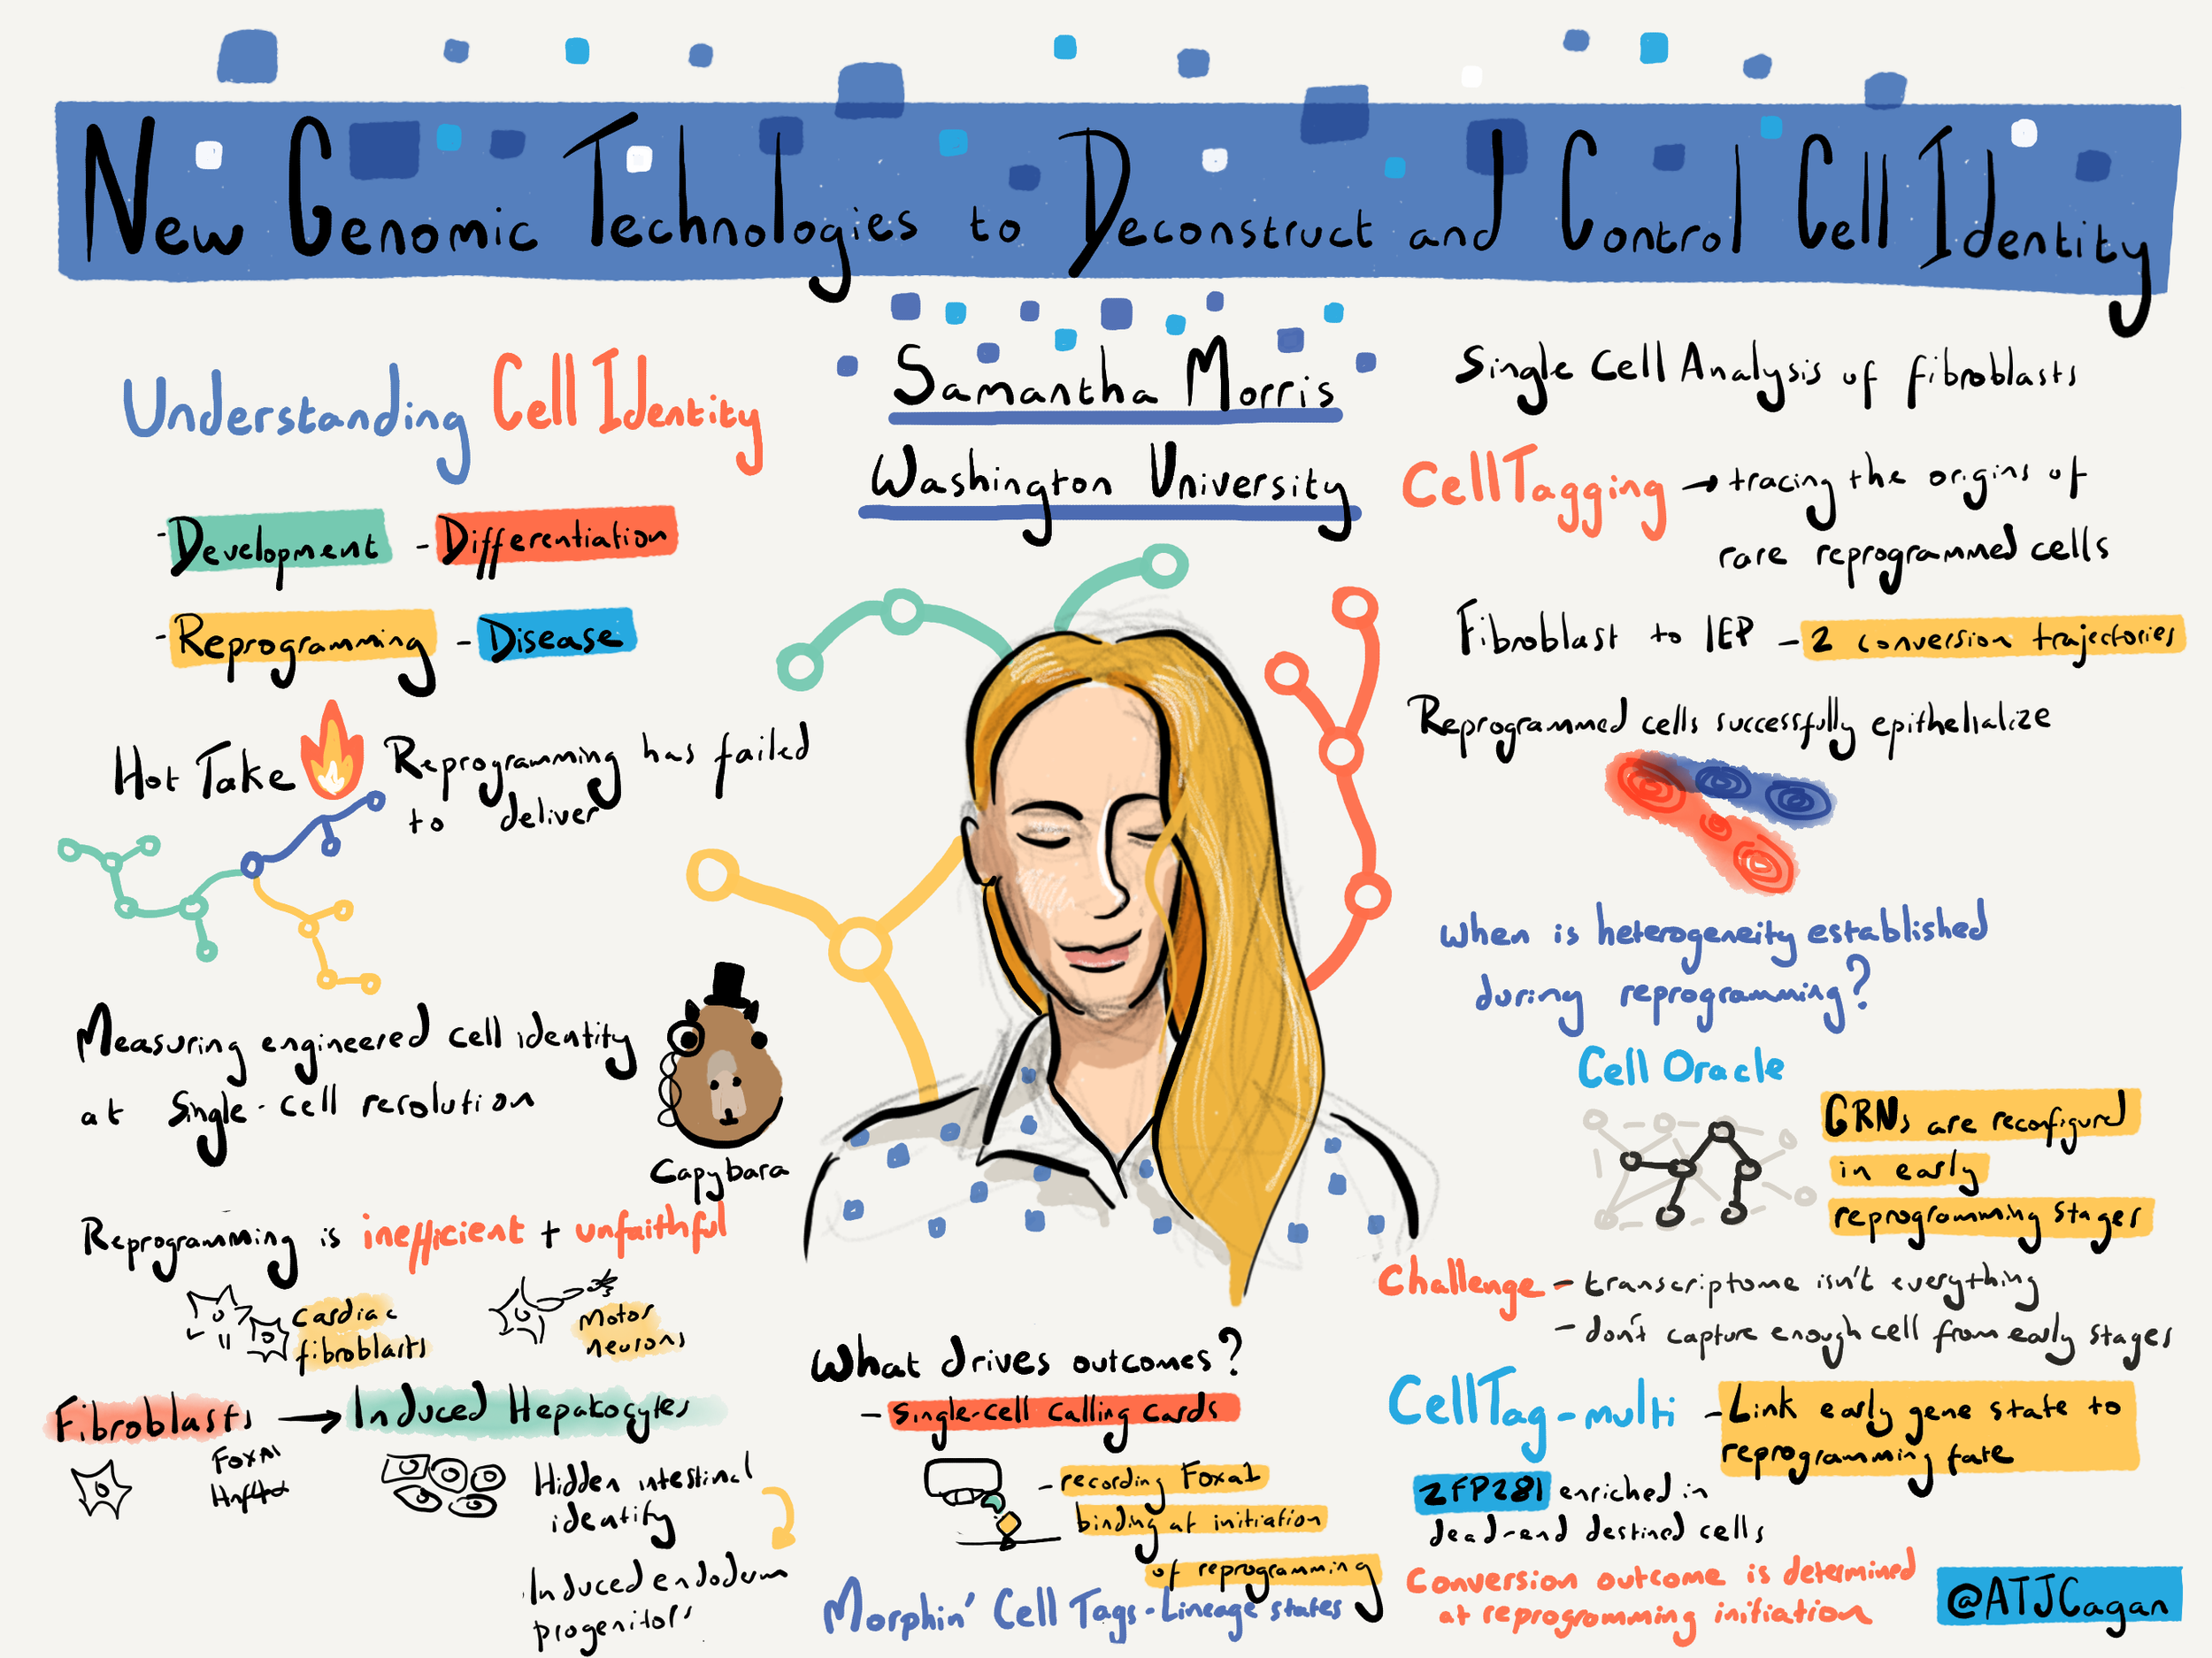 New Genomic Technologies to Deconstruct and Control Cell Identity
Samantha Morris
Washington University
Understanding Cell Identity
- Development - Differentiation
- Reprogramming - Disease
Hot Take Reprogramming has failed
to deliver
Measuring engineered cell identity
at Single-cell resolution
Capybara
Reprogramming is inefficient + unfaithful
cardiac
fibroblasts
motor
neurons
Fibroblasts → Induced Hepatocytes
FoxA1
Hnf4α
Hidden intestinal
identity
Induced endoderm
progenitors
What drives outcomes?
- Single-cell Calling Cards
- recording Foxa1
binding at initiation
of reprogramming
Morphin' Cell Tags - Lineage states
Single Cell Analysis of fibroblasts
CellTagging → tracing the origins of
rare reprogrammed cells
Fibroblast to IEP - 2 conversion trajectories
Reprogrammed cells successfully epithelialize
when is heterogeneity established
during reprogramming?
Cell Oracle
GRNs are reconfigured
in early
reprogramming stages
Challenge - transcriptome isn't everything
- don't capture enough cell from early stages
CellTag-multi - Link early gene state to
reprogramming fate
ZFP281 enriched in
dead-end destined cells
Conversion outcome is determined
at reprogramming initiation
@ATJCagan